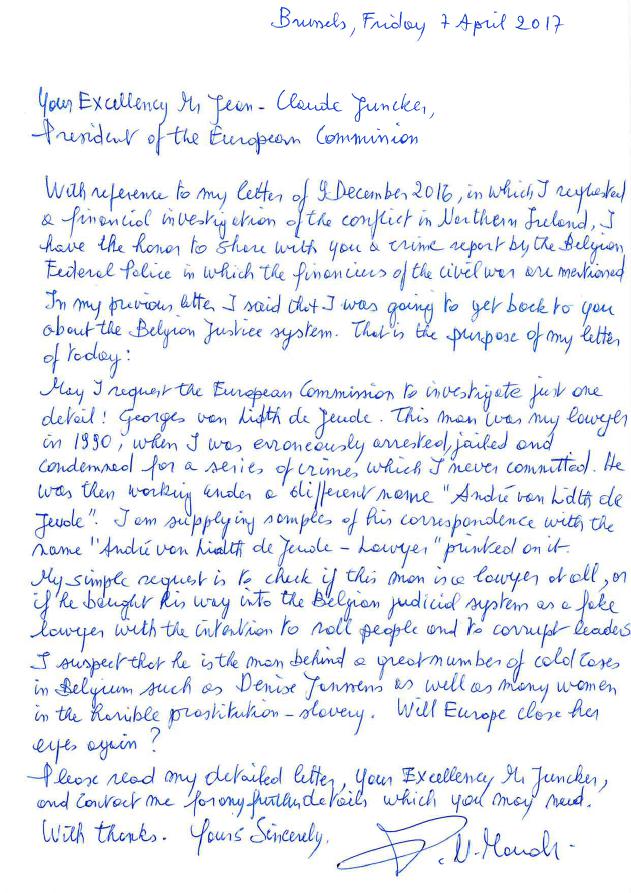 Brussels, Friday 7 April 2017
Your Excellency Mr Jean-Claude Juncker,
President of the European Commission
With reference to my letter of 9 December 2016, in which I requested
a financial investigation of the conflict in Northern Ireland, I
have the honor to share with you a crime report by the Belgian
Federal Police in which the financiers of the civil war are mentioned
In my previous letter I said that I was going to get back to you
about the Belgian Justice system. That is the purpose of my letter
of today:
May I request the European Commission to investigate just one
detail: Georges van Lidth de Jeude. This man was my lawyer
in 1990, when I was erroneously arrested, jailed and
condemned for a series of crimes which I never committed. He
was then working under a different name "André van Lidth de
Jeude". I am supplying samples of his correspondence with the
name "André van Lidth de Jeude - Lawyer" printed on it.
My simple request is to check if this man is a lawyer at all, or
if he bought his way into the Belgian judicial system as a fake
lawyer with the intention to roll people and to corrupt leaders
I suspect that he is the man behind a great number of cold cases
in Belgium such as Denise Janssens as well as many women
in the horrible prostitution-slavery. Will Europe close her
eyes again?
Please read my detailed letter, Your Excellency Mr Juncker,
and contact me for any further details which you may need.
With thanks. Yours Sincerely.